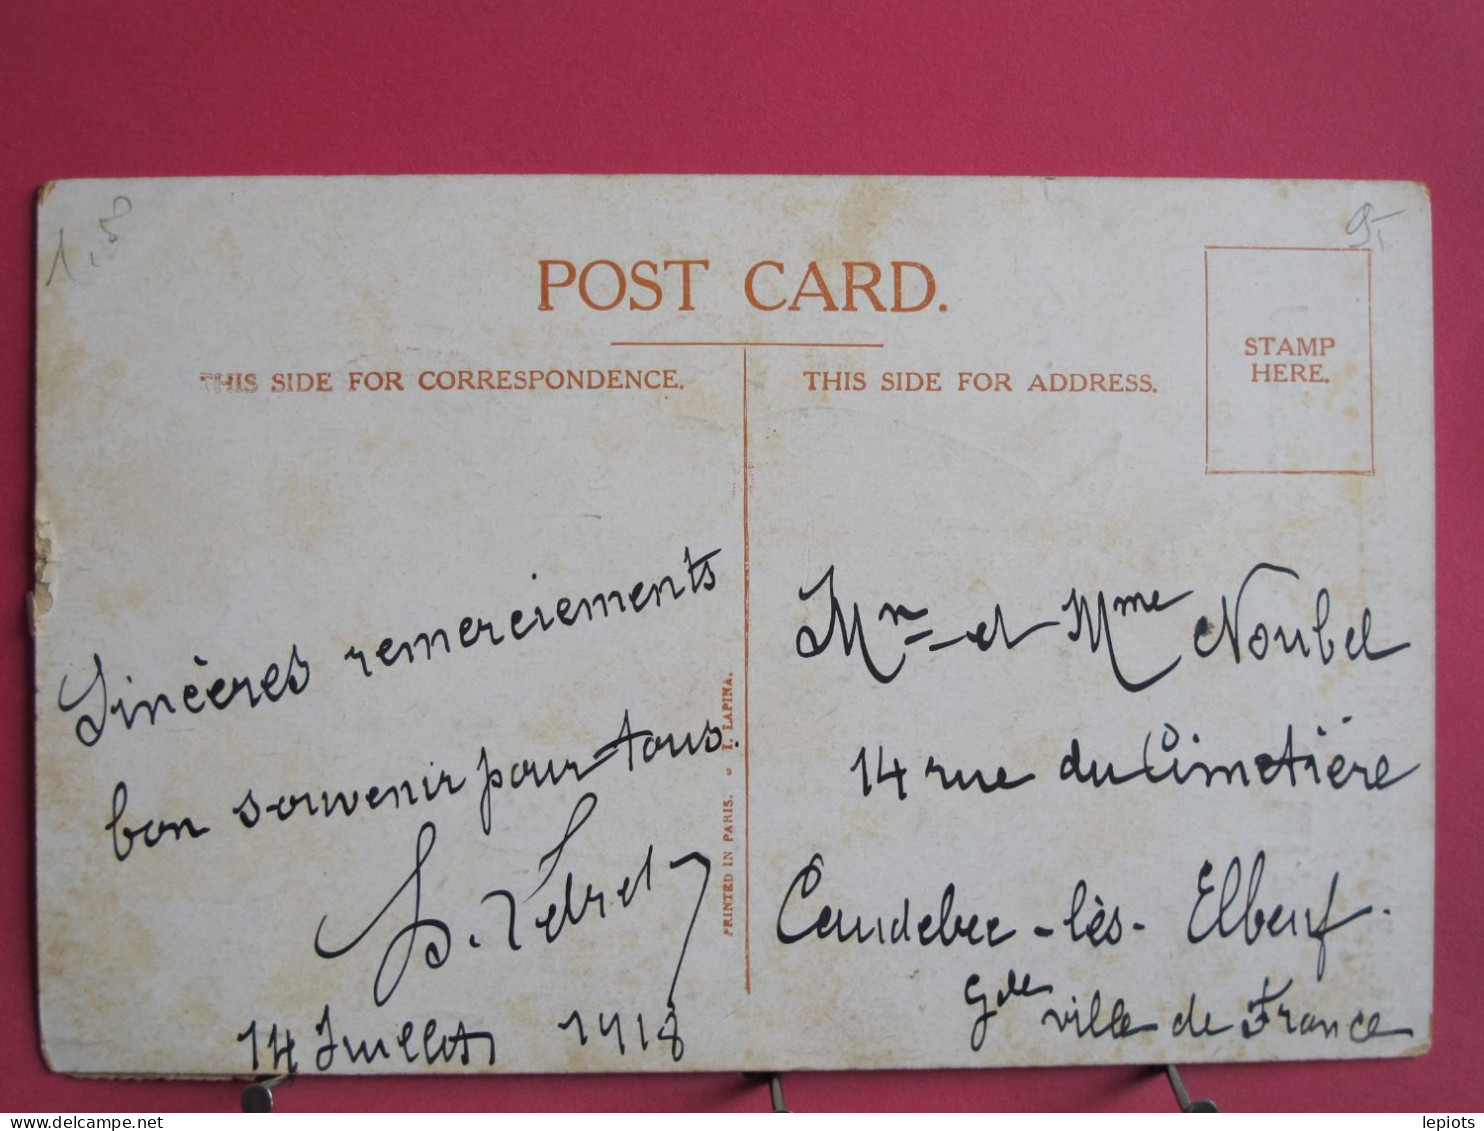 1,8
9,-
POST CARD.
THIS SIDE FOR CORRESPONDENCE.
THIS SIDE FOR ADDRESS.
STAMP
HERE.
Sincères remerciements
bon souvenir pour tous.
14 Juillet 1918
PRINTED IN PARIS. - I. LAPINA.
Mr et Mme Noubel
14 rue du Cimetière
Caudebec-lès-Elbeuf
Gde ville de France
delcampe.net
lepiots